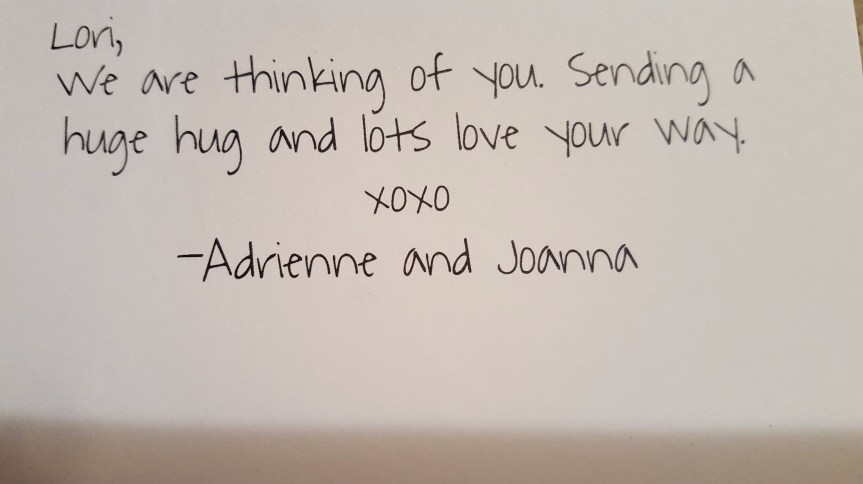 Lori,
We are thinking of you. Sending a
huge hug and lots love your way.
XOXO
-Adrienne and Joanna